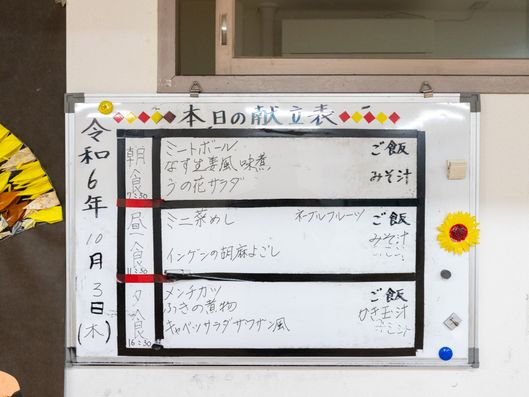 本日の献立表
令和6年10月3日(木)
朝食
7:30
ミートボール
なす生姜風味煮
うの花サラダ
ご飯
みそ汁
昼食
ミニ菜めし
ネーブルフルーツ
インゲンの胡麻よごし
ご飯
みそ汁
夕食
16:30
メンチカツ
ふきの煮物
キャベツサラダサウザン風
ご飯
かき玉汁